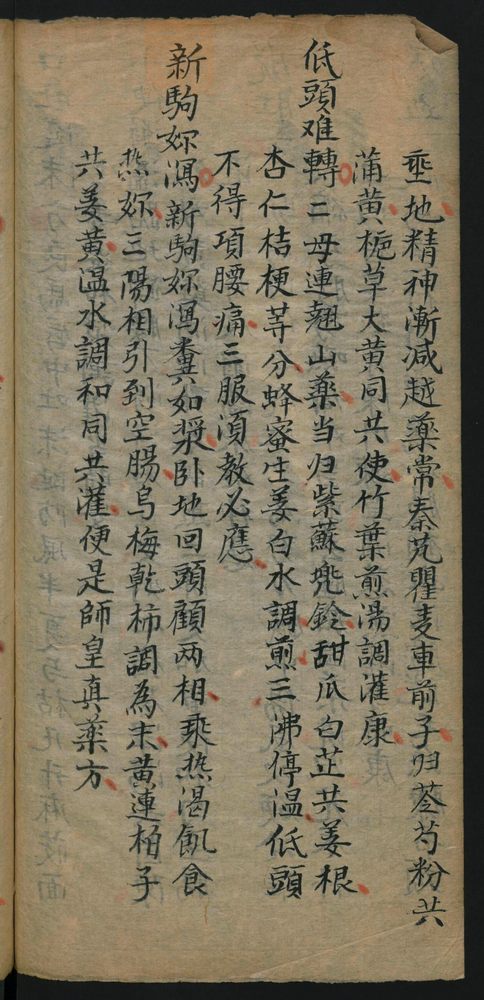 垂地精神漸減越藥常秦艽瞿麦車前子归荅芍粉共
蒲黄梔草大黄同共使竹葉煎湯調灌康
低頭难轉二母連翹山藥当归紫蘇兠鈴甜瓜白芷共姜根
杏仁桔梗等分蜂蜜生姜白水調煎三沸停温低頭
不得項腰痛三服湏教必應
新駒妳瀉新駒妳瀉糞如漿卧地回頭顧两相乘热渴飢食
热妳三陽相引到空腸烏梅乾柿調為末黄連柏子
共姜黄温水調和同共灌便是師皇真藥方